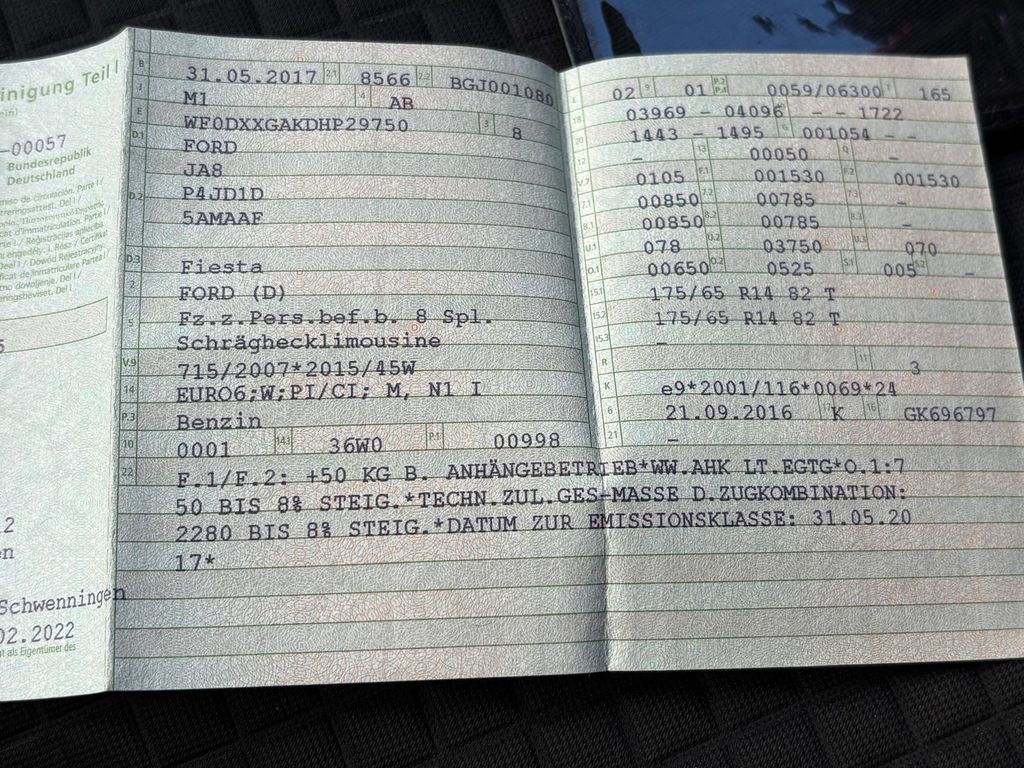 inigung Teil I
-00057
Bundesrepublik
Deutschland
5
2
en
Schwenningen
02.2022
t als Eigentümer des
B 31.05.2017 2.1 8566 2.2 BGJ001080
J M1 4 AB
E WF0DXXGAKDHP29750 3 8
D.1 FORD
JA8
D.2 P4JD1D
5AMAAF
D.3 Fiesta
2 FORD (D)
5 Fz.z.Pers.bef.b. 8 Spl.
Schräghecklimousine
V.9 715/2007*2015/45W
14 EURO6;W;PI/CI; M, N1 I
P.3 Benzin
10 0001 14.1 36W0 P.1 00998
L 02 9 01 P.2 P.4 0059/06300 T 165
18 03969 - 04096 - - 1722
20 1443 - 1495 G 001054 - -
12 - 13 00050 Q -
V.7 0105 F.1 001530 F.2 001530
7.1 00850 7.2 00785 7.3 -
8.1 00850 8.2 00785 8.3 -
U.1 078 U.2 03750 U.3 070
O.1 00650 O.2 0525 S.1 005 S.2 -
15.1 175/65 R14 82 T
15.2 175/65 R14 82 T
15.3 -
R 11 3
K e9*2001/116*0069*24
6 21.09.2016 17 K 16 GK696797
21 -
22 F.1/F.2: +50 KG B. ANHÄNGEBETRIEB*WW.AHK LT.EGTG*O.1:7
50 BIS 8% STEIG.*TECHN.ZUL.GES-MASSE D.ZUGKOMBINATION:
2280 BIS 8% STEIG.*DATUM ZUR EMISSIONSKLASSE: 31.05.20
17*